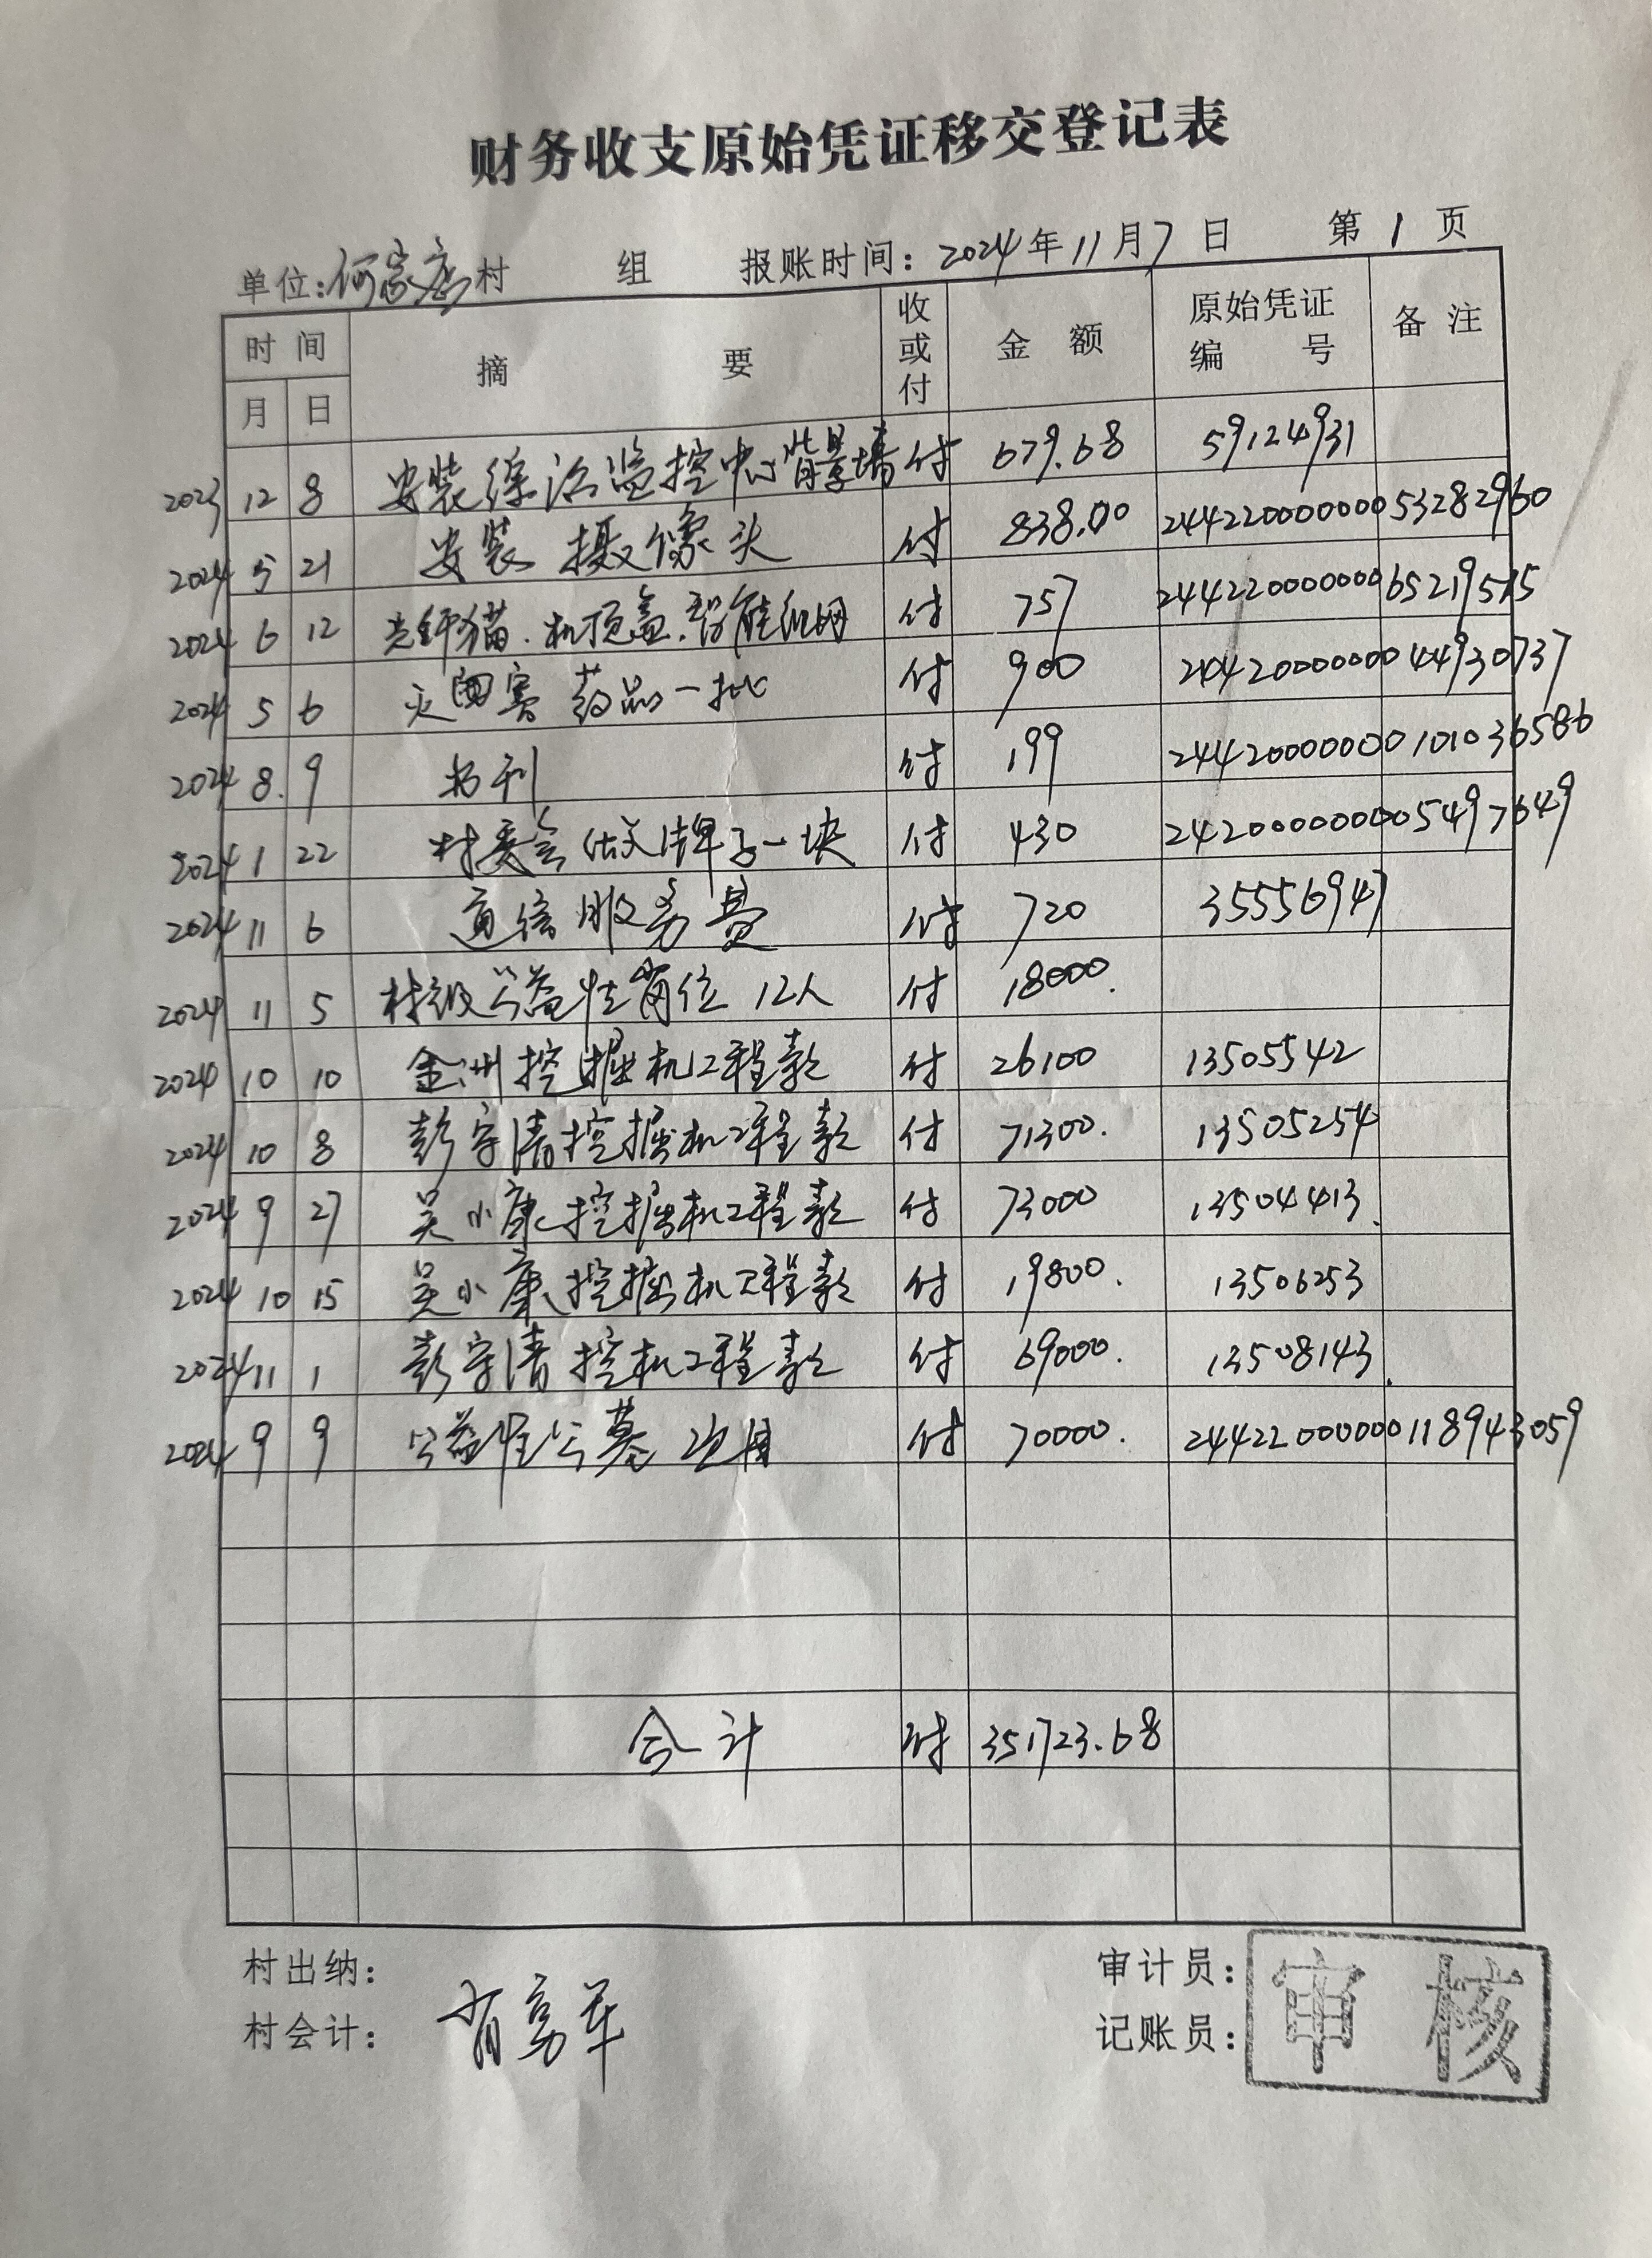 财务收支原始凭证移交登记表
单位：何家店村 组 报账时间：2024年11月7日 第1页
时间 摘要 收或付 金额 原始凭证编号 备注
月 日
2023 12 8 安装综治监控中心背景墙 付 679.68 59124931
2024 5 21 安装摄像头 付 838.00 24422000000053282960
2024 6 12 光纤猫.机顶盒.智能组网 付 757 24422000000065219515
2024 5 6 灭四害药品一批 付 900 24420000000044930737
2024 8.9 书刊 付 199 244200000000101036586
2024 1 22 村委会做牌子一块 付 430 24200000000005497649
2024 11 6 通信服务费 付 720 35556947
2024 11 5 村级公益性岗位 12人 付 18000.
2024 10 10 金洲挖掘机工程款 付 26100 13505542
2024 10 8 彭宇清挖掘机工程款 付 71300. 13505254
2024 9 27 吴小康挖掘机工程款 付 73000 13504413.
2024 10 15 吴小康挖掘机工程款 付 19800. 13506253
2024 11 1 彭宇清挖机工程款 付 69000. 13508143.
2024 9 9 公益性公墓 付 70000. 244220000000118943059
合计 付 351723.68
村出纳： 审计员：
村会计： 记账员：
审核